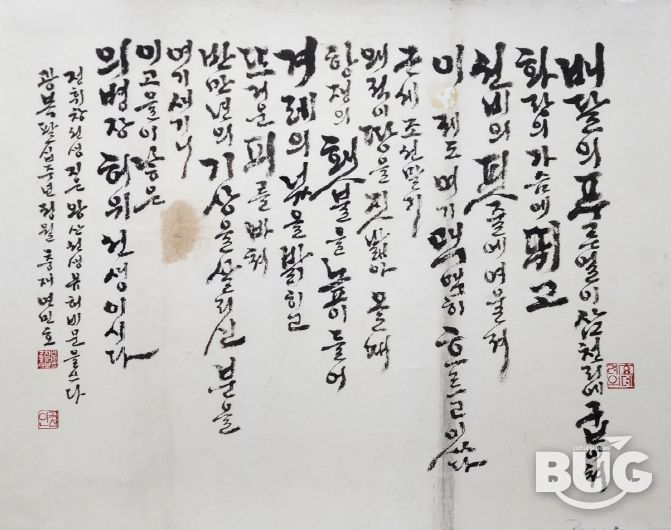 배달의 푸른얼이 삼천리에 굽이쳐
화랑의 가슴에 뛰고
선비의 핏줄에 어울려
이제도 여기 맥맥히 흐르고 있다
근세 조선말기
왜적이 땅을 짓밟아 올때
항쟁의 횃불을 높이 들어
겨레의 넋을 밝히고
뜨거운 피를 바쳐
반만년의 기상을 살리신 분을
여기
이고을이 낳은
의병장 허위선생이시다
정휘창선생 짓은 왕산선생유허비문을 쓰다
광복팔십주년 정월
BUG